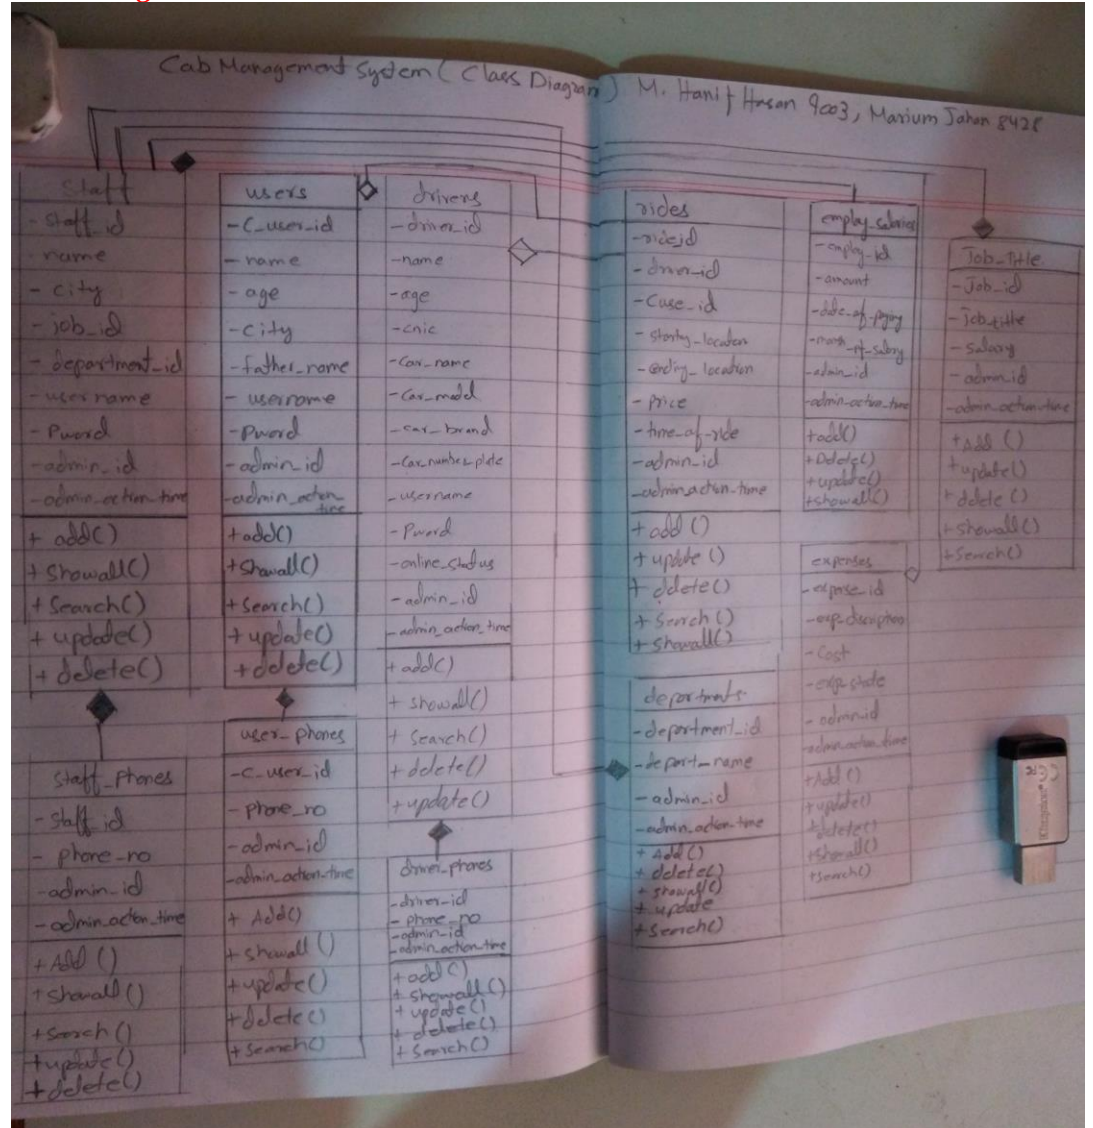 Cab Management System ( Class Diagram) M. Hanif Hasan 9003, Marium Jahan 8428
Staff
- staff_id
- name
- city
- job_id
- department_id
- username
- Pword
- admin_id
- admin_action_time
+ add()
+ Showall()
+ Search()
+ update()
+ delete()
Staff_Phones
- staff_id
- phone_no
- admin_id
- admin_action_time
+ Add ()
+ Showall ()
+ Search ()
+ update()
+ delete()
users
- C_user_id
- name
- age
- City
- father_name
- username
- Pword
- admin_id
- admin_action_
time
+ add()
+ Showall()
+ Search()
+ update()
+ delete()
user_phones
- C_user_id
- phone_no
- admin_id
- admin_action_time
+ Add()
+ Showall ()
+ update()
+ delete()
+ Search()
drivers
- driver_id
- name
- age
- cnic
- Car_name
- Car_model
- car_brand
- Car_number_plate
- username
- Pword
- online_status
- admin_id
- admin_action_time
+ add()
+ showall()
+ Search()
+ delete()
+ update()
driver_phones
- driver_id
- phone_no
- admin_id
- admin_action_time
+ add()
+ showall()
+ update()
+ delete()
+ Search()
rides
- rideid
- driver_id
- Cuse_id
- starting_location
- ending_location
- Price
- time_of_ride
- admin_id
- admin action_time
+ add ()
+ update ()
+ delete()
+ Search()
+ Showall()
departments
- department_id
- depart_name
- admin_id
- admin_action_time
+ Add()
+ delete()
+ showall()
+ update
+ Search()
employ_salaries
- employ_id
- amount
- date_of_paying
- month_of_salary
- admin_id
- admin_action_time
+ add()
+ Delete()
+ update()
+ showall()
expenses
- expense_id
- exp_discription
- Cost
- admin_id
- admin_action_time
+ Add()
+ update()
+ delete()
+ Showall()
+ Search()
Job_Title
- Job_id
- job_title
- Salary
- admin_id
- admin_action_time
+ Add ()
+ update()
+ delete ()
+ Showall()
+ Search()
Kingston